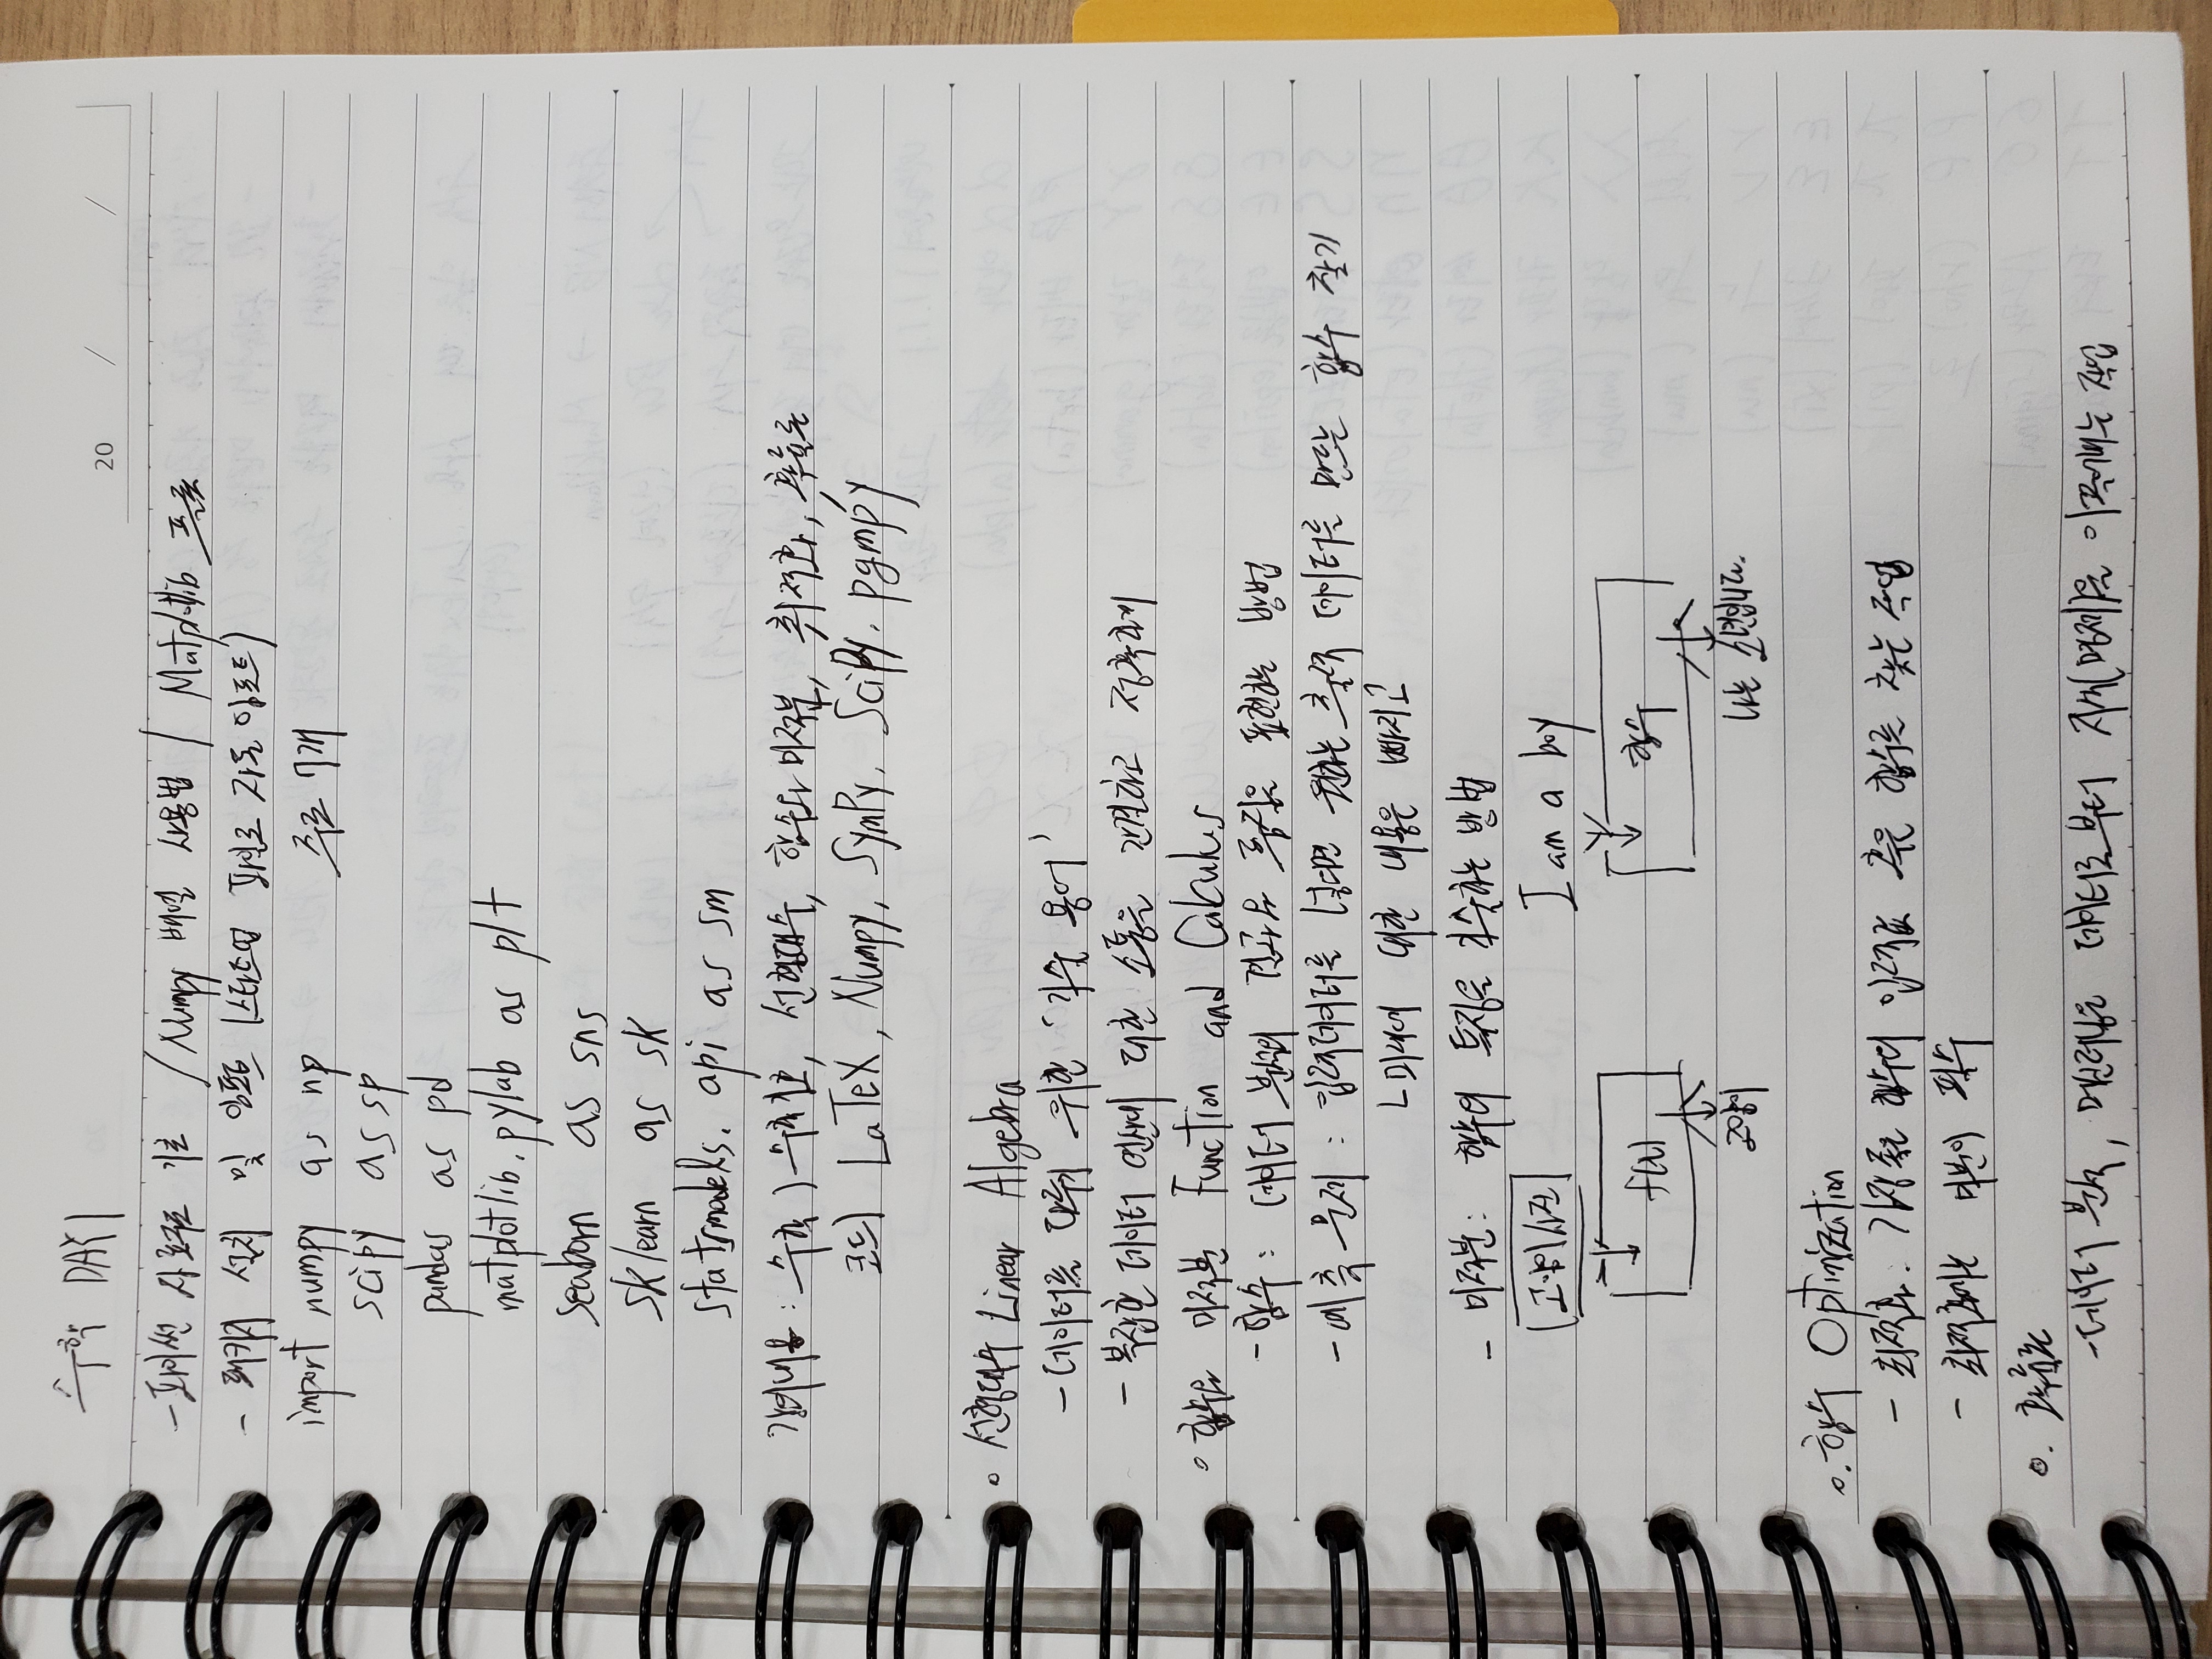 수학 DAY1
20 / /
- 파이썬 자료구조 기초 / Numpy 배열 사용법 / Matplotlib 프로
- 패키지 설치 및 임포트 (스타트업 파일로 자동 임포트)
import numpy as np 주로 7개
scipy as sp
pandas as pd
matplotlib.pylab as plt
seaborn as sns
sklearn as sk
statsmodels.api as sm
강의내용 : 수학) 수학기초, 선형대수, 함수와 미적분, 최적화, 확률론
코드) LaTeX, Numpy, SymPy, SciPy, pgmpy
o 선형대수 Linear Algebra
- 데이터를 다루기 위한 '기술 용어'
- 복잡한 데이터 연산에 대한 소통을 간결하고 정확하게
o 함수와 미적분 Function and Calculus
- 함수 : 데이터 분석의 결과와 특징을 표현하는 방법
- 예측 문제 : 입력데이터를 넣으면 원하는 출력 데이터를 만드는 함수 찾기
ㄴ미래에 대한 내용은 빠지고
- 미적분 : 함수의 특징을 기술하는 방법
고양이사진 I am a boy
f(x) 함수
고양이 나는 소년입니다.
o. 함수 Optimization
- 최적화 : 가장 좋은 함수의 입력값 혹은 함수를 찾는 작업
- 최적화에는 미분이 필수
o. 확률론
- 데이터 분석, 머신러닝은 데이터로부터 지식(명제)을 이끌어내는 작업